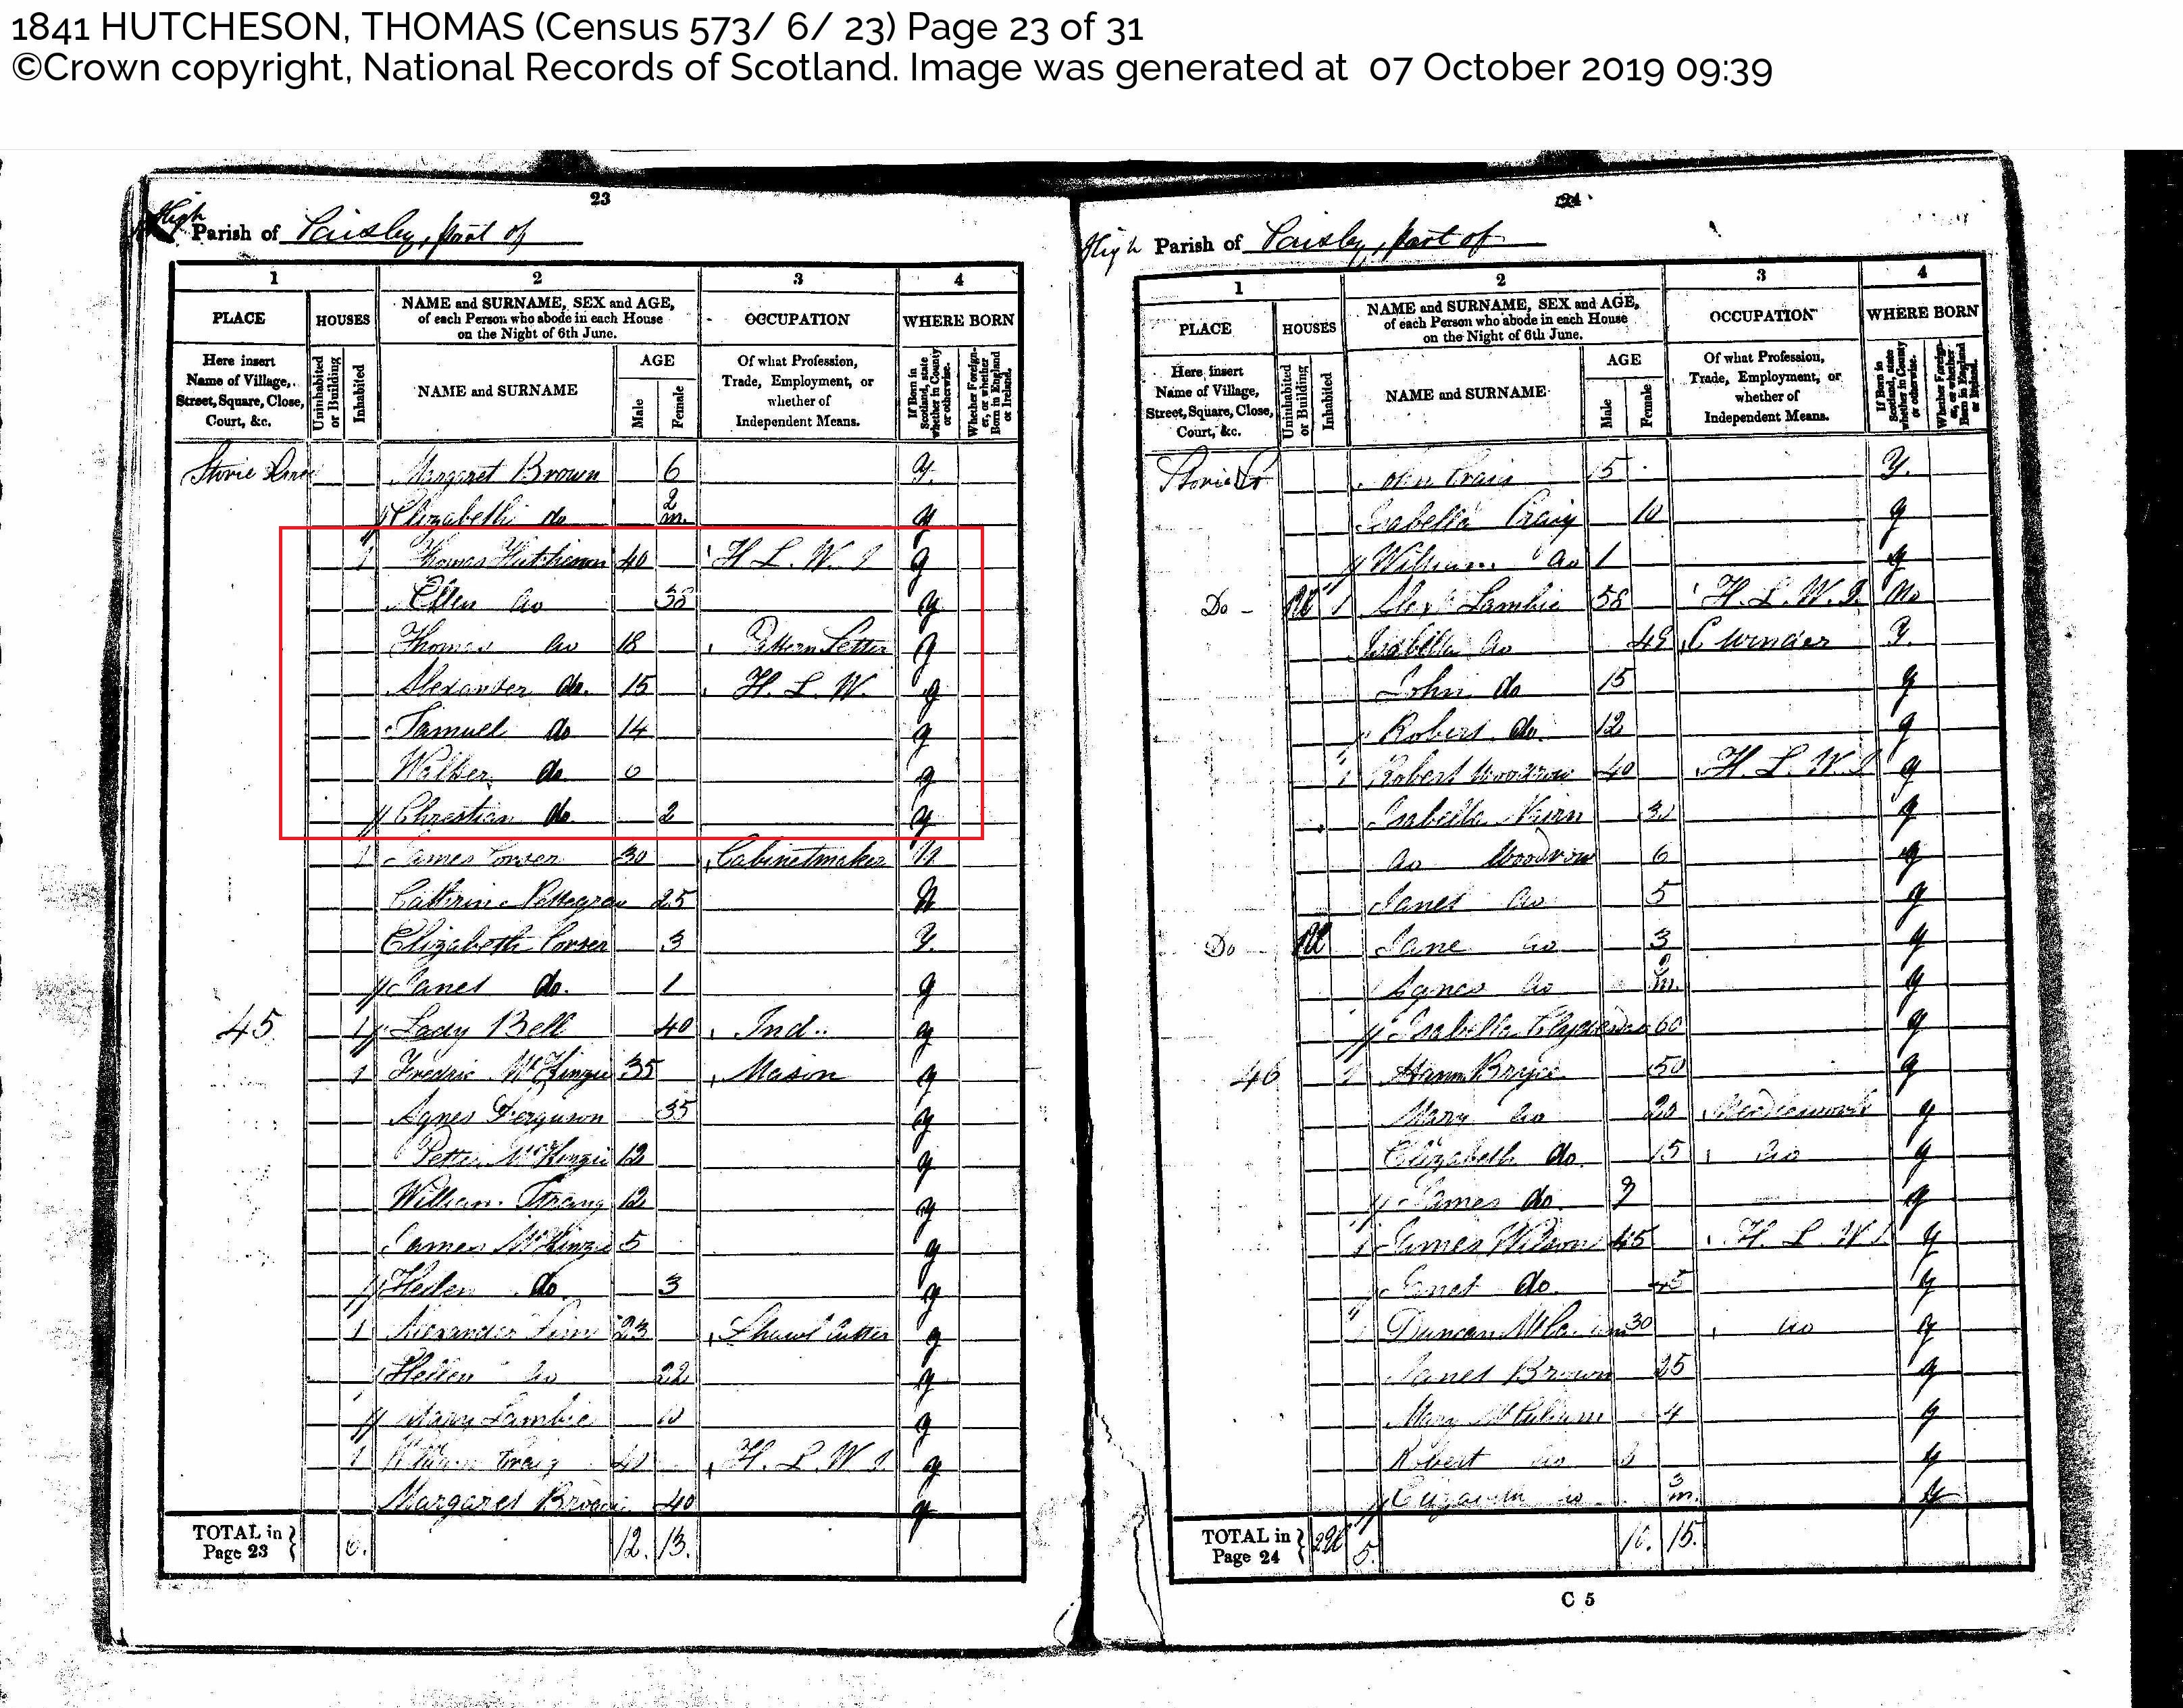 1841 HUTCHESON, THOMAS (Census 573/ 6/ 23) Page 23 of 31
©Crown copyright, National Records of Scotland. Image was generated at 07 October 2019 09:39
23
High Parish of Paisley, part of
1 2 3 4
PLACE HOUSES NAME and SURNAME, SEX and AGE, of each Person who abode in each House on the Night of 6th June. OCCUPATION WHERE BORN
Here insert Name of Village, Street, Square, Close, Court, &c. Uninhabited or Building Inhabited NAME and SURNAME AGE Male Female Of what Profession, Trade, Employment, or whether of Independent Means. If Born in Scotland, state whether in County or otherwise. Whether Foreigner, or whether Born in England or Ireland.
Storie Margaret Brown 6 Y.
Elizabeth do 2 m. y
1 Thomas Hutcheson 40 H. L. W. y
Ellen do 38 y
Thomas do 18 Pattern Setter y
Alexander do. 15 H. L. W. y
Samuel do 14 y
Walter do y
Christian do. 2 y
1 James 30 Cabinetmaker N
25 N
Elizabeth 3 Y.
Janet do. 1 y
45 1 Lady Bell 40 Ind. y
1 Fredric McKinzie 35 Mason y
Agnes Ferguson 35 y
Peter McKinzie 12 y
William Strang 12 y
James McKinzie 5 y
Hellen do 3 y
1 Alexander 23 Shawl Cutter y
Hellen do 22 y
Mary Lambie y
1 William Craig 40 H. L. W. y
Margaret Brown 40 y
TOTAL in Page 23 12. 13.
24
High Parish of Paisley, part of
1 2 3 4
PLACE HOUSES NAME and SURNAME, SEX and AGE, of each Person who abode in each House on the Night of 6th June. OCCUPATION WHERE BORN
Here insert Name of Village, Street, Square, Close, Court, &c. Uninhabited or Building Inhabited NAME and SURNAME AGE Male Female Of what Profession, Trade, Employment, or whether of Independent Means. If Born in Scotland, state whether in County or otherwise. Whether Foreigner, or whether Born in England or Ireland.
Storie St John Craig 5 Y.
Isabella Craig 10 y
William do 1 y
Do 1 Alexr Lambie 58 H. L. W. No
Isabella do 49 Winder Y.
John do 15 y
Robert do. 12 y
1 Robert Woodrow 40 H. L. W. y
Isabella Nairn y
do Woodrow 6 y
Janet do 5 y
Do Jane do 3 y
Agnes do m. y
Isabella 60 y
46 1 Bryce 50 y
Mary do 20 Needlework y
Elizabeth do. 15 do y
James do. y
1 James Wilson 45 H. L. W. y
Janet do. 45 y
Duncan 30 do y
Janet Brown 25 y
Mary 4 y
Robert do y
Elizabeth do 3 m. y
TOTAL in Page 24 5. 15.
C 5